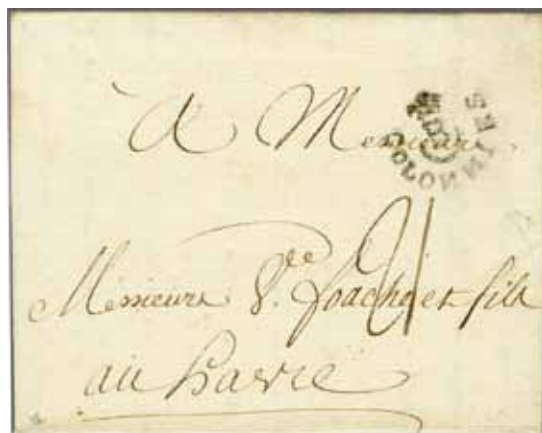 à Messieurs
COLONNIES
Messieurs V.de foache et fils
21
au havre